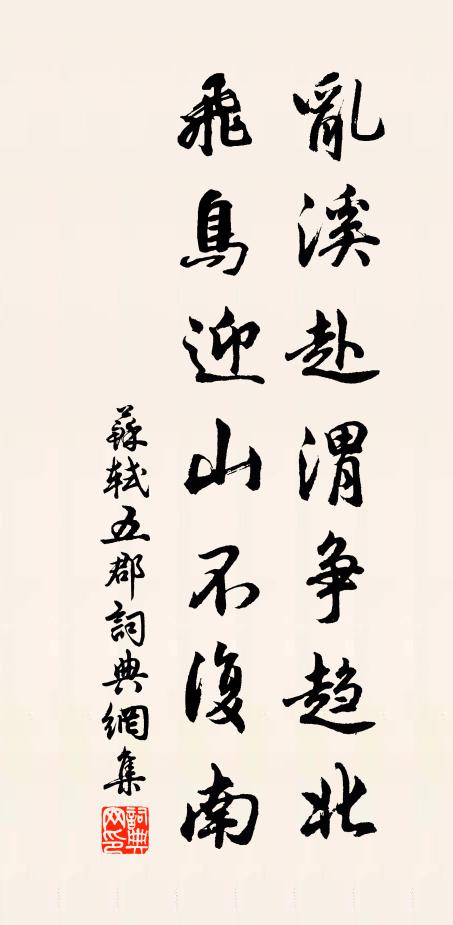 亂溪赴渭争趨北
飛鳥迎山不復南
蘇軾五郡詞典網集
詞典网印